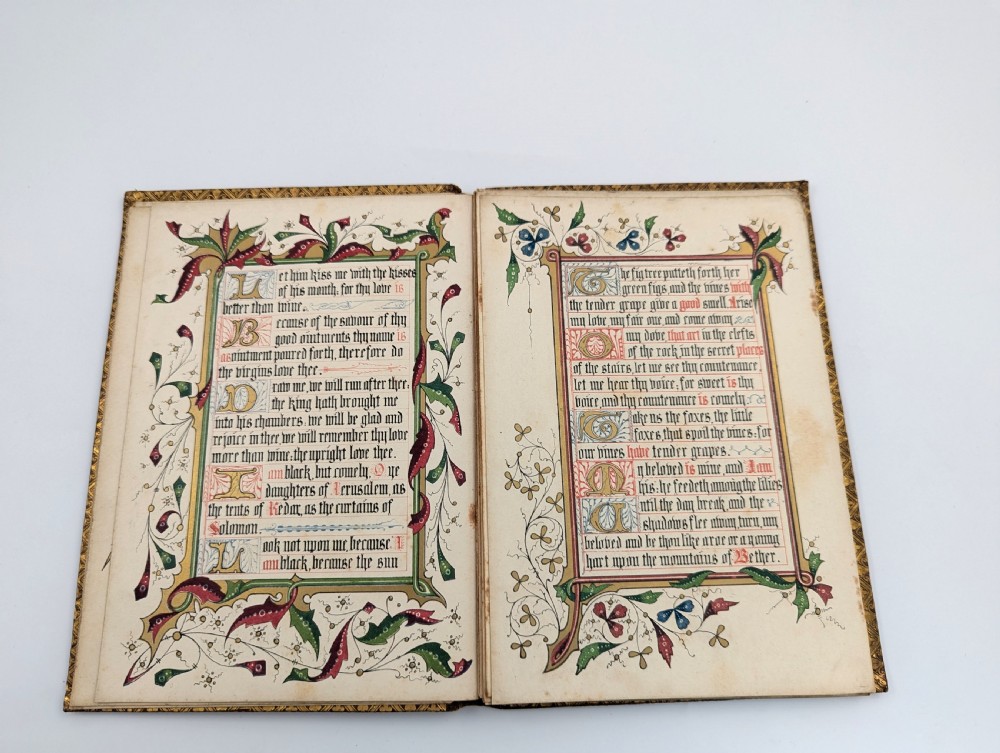 Let him kiss me with the kisses
of his mouth: for thy love is
better than wine.
Because of the savour of thy
good ointments thy name is
as ointment poured forth, therefore do
the virgins love thee.
Draw me, we will run after thee:
the king hath brought me
into his chambers: we will be glad and
rejoice in thee, we will remember thy love
more than wine: the upright love thee.
I am black, but comely, O ye
daughters of Jerusalem, as
the tents of Kedar, as the curtains of
Solomon.
Look not upon me, because I
am black, because the sun
The fig tree putteth forth her
green figs, and the vines with
the tender grape give a good smell. Arise
my love, my fair one, and come away.
O my dove, that art in the clefts
of the rock, in the secret places
of the stairs, let me see thy countenance,
let me hear thy voice; for sweet is thy
voice and thy countenance is comely.
Take us the foxes, the little
foxes, that spoil the vines: for
our vines have tender grapes.
My beloved is mine, and I am
his: he feedeth among the lilies
Until the day break, and the
shadows flee away, turn, my
beloved and be thou like a roe or a young
hart upon the mountains of Bether.